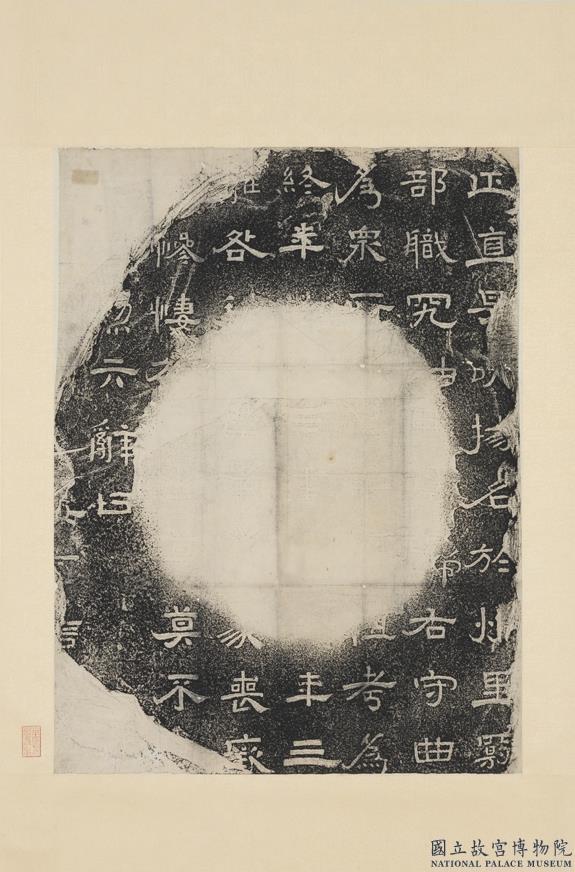 正直是以揚名於州里
部職究由右守曲
為眾所祖考為
終年年三
咎家喪
慘悽莫不
六辭曰
言
國立故宮博物院
NATIONAL PALACE MUSEUM